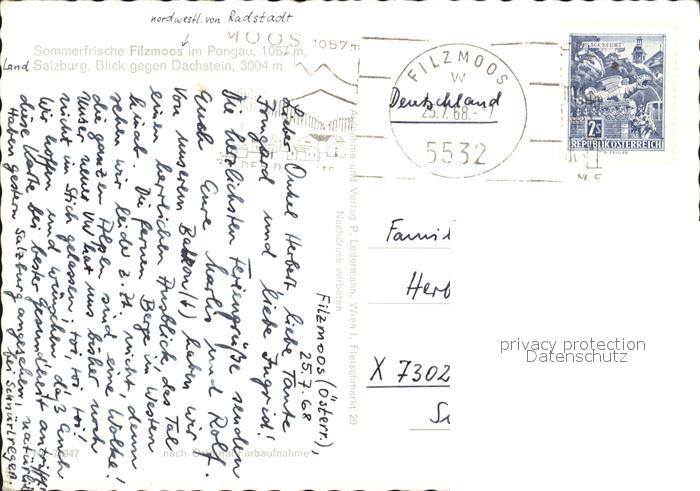 nordwestl. von Radstadt
Sommerfrische Filzmoos im Pongau, 1057 m,
Land Salzburg, Blick gegen Dachstein, 3004 m
MOOS 1057m
FILZMOOS
25.7.68.-7
5532
Deutschland
KLAGENFURT
2S
REPUBLIK ÖSTERREICH
Filzmoos (Österr.),
25.7.68
Lieber Onkel Herbert, liebe Tante
Irmgard und liebe Ingrid!
Die herzlichsten Feriengrüße senden
Euch Eure Marlis und Rolf.
Von unserem Balkon (6) haben wir
einen herrlichen Ausblick, das Tal
hinab. Die fernen Berge im Westen
sehen wir leider z. Zt. nicht, denn
die ganzen Alpen sind eine Wolke!
Unser neuer VW hat uns bisher noch
nicht im Stich gelassen, toi, toi, toi!
Wir hoffen und wünschen, daß Euch
diese Karte bei bester Gesundheit antrifft.
Haben gestern Salzburg angesehen, natürlich
bei Schnürlregen!
Aufnahme und Verlag P. Ledermann, Wien I, Fleischmarkt 20
Nachdruck verboten
nach Original-Farbaufnahme
Famil
Herb
X 7302
privacy protection
Datenschutz